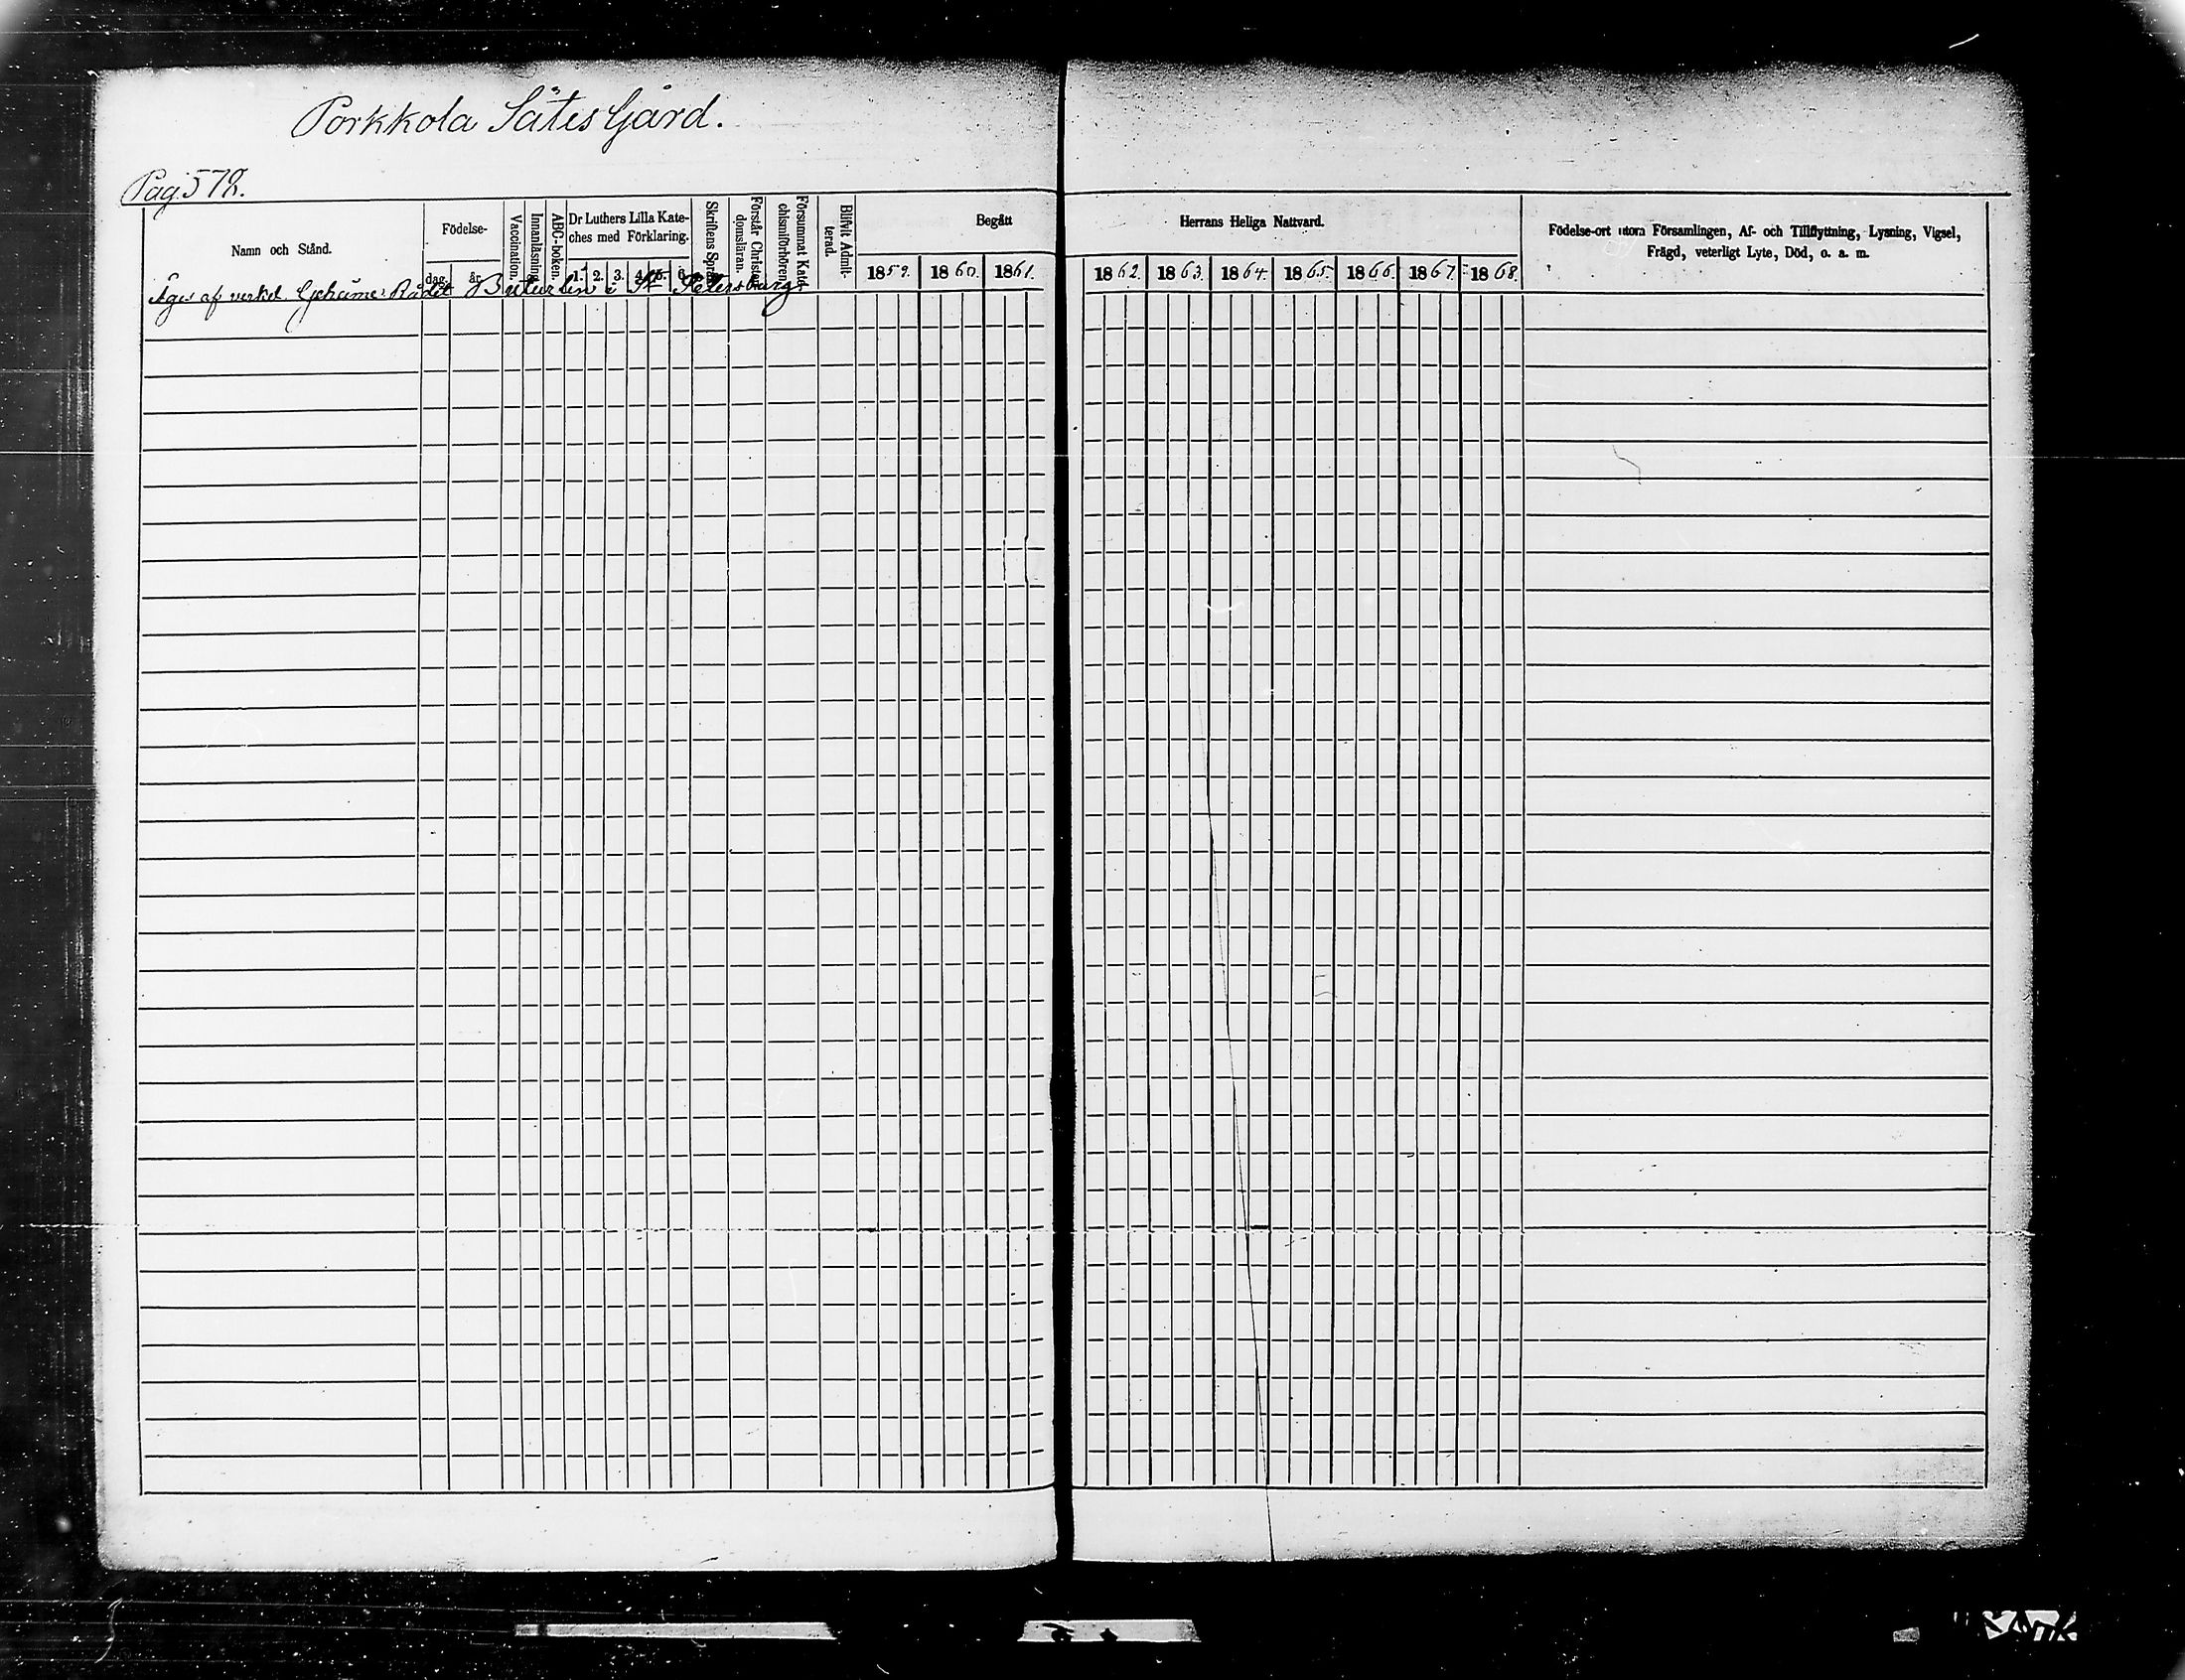 Porkkola Sätes Gård.
Pag. 578.
Namn och Stånd.
Födelse-
dag.
år.
Vaccination.
Innanläsning.
ABC-boken.
Dr Luthers Lilla Kate-
ches med Förklaring.
1. 2. 3. 4. 5. 6.
Skriftens Språk.
Förstår Christen-
domsläran.
Försummat Kate-
chismiförhören.
Blifvit Admit-
terad.
Begått
Herrans Heliga Nattvard.
1859. 1860. 1861. 1862. 1863. 1864. 1865. 1866. 1867. 1868.
Födelse-ort utom Församlingen, Af- och Tillflyttning, Lysning, Vigsel,
Frägd, veterligt Lyte, Död, o. a. m.
Äges af verkel. Geheime Rådet Buturlin i St Petersburg.